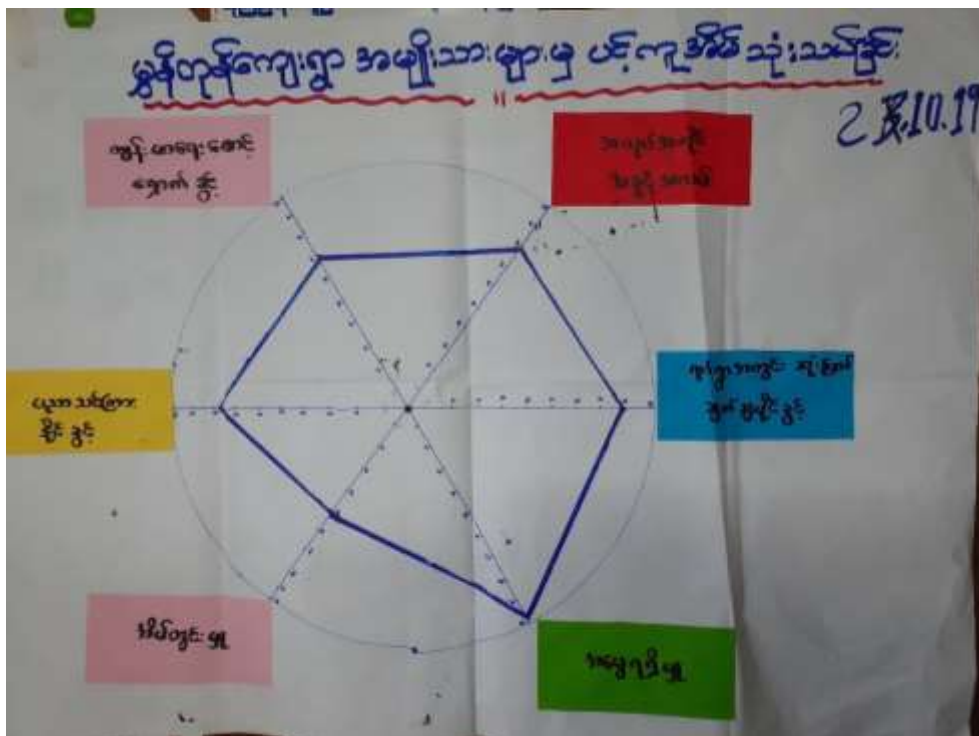 မွန်တုန်ကျေးရွာ အမျိုးသားများမှ ပင့်ကူအိမ် သုံးသပ်ခြင်း
10.19
ကျန်းမာရေးစောင့်
ရှောက်
အလုပ်အကိုင်
အခွင့်အလမ်း
ပညာသင်ကြား
နိုင်ခွင့်
ရပ်ရွာအတွင်း ဆုံးဖြတ်
ချက်ချပိုင်ခွင့်
အိမ်တွင်းမှု
အမွေရရှိမှု